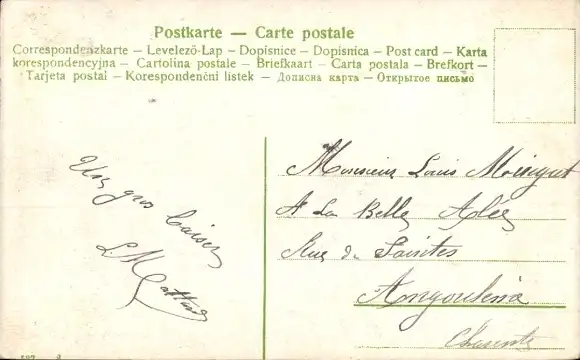 Postkarte — Carte postale
Correspondenzkarte — Levelező-Lap — Dopisnice — Dopisnica — Post card — Karta
korespondencyjna — Cartolina postale — Briefkaart — Carta postala — Brefkort —
Tarjeta postal — Korespondenční lístek — Дописна карта — Открытое письмо
Un gros baiser
Monsieur Louis
A La Belle
Rue de Saintes
Angoulême
Charente